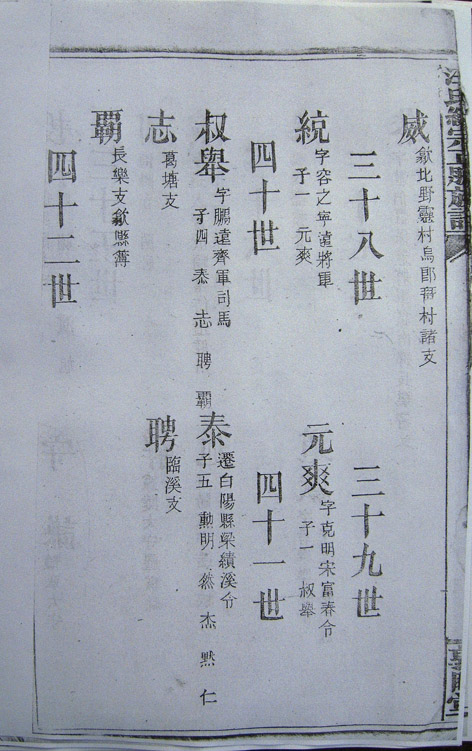 威
歙北野靈村烏郎
村諸支
三十八世
三十九世
統
字容之寧遠將軍
子一 元爽
元爽
字克明宋富春令
子一 叔舉
四十世
四十一世
叔舉
字鵬遠齊軍司馬
子四 泰 志 聘 覇
泰
遷白陽縣梁績溪令
子五 勳明 然 杰 黙 仁
志
葛塘支
聘
臨溪支
覇
長樂支歙縣簿
四十二世